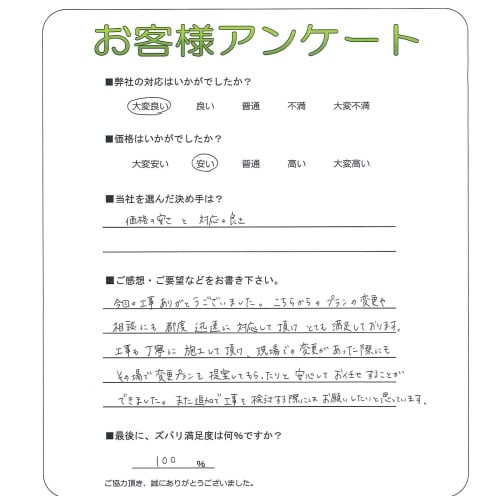 お客様アンケート
■弊社の対応はいかがでしたか？
大変良い 良い 普通 不満 大変不満
■価格はいかがでしたか？
大変安い 安い 普通 高い 大変高い
■当社を選んだ決め手は？
価格の安さ と 対応の良さ
■ご感想・ご要望などをお書き下さい。
今回の工事ありがとうございました。こちらからのプランの変更や
相談にも都度迅速に対応して頂けとても満足しております。
工事も丁寧に施工して頂け、現場での変更があった際にも
その場で変更プランを提案してもらったりと安心してお任せすることが
できました。また追加で工事を検討する際にはお願いしたいと思っています。
■最後に、ズバリ満足度は何%ですか？
100 %
ご協力頂き、誠にありがとうございました。